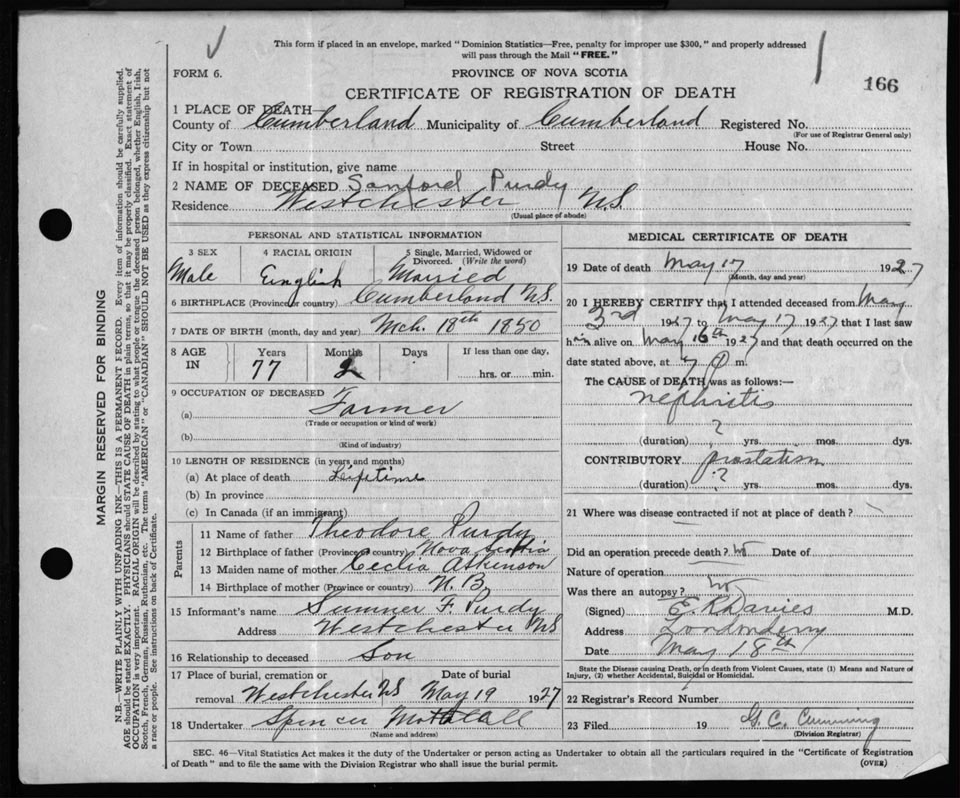 This form if placed in an envelope, marked "Dominion Statistics—Free, penalty for improper use $300," and properly addressed
will pass through the Mail "FREE."
FORM 6.
PROVINCE OF NOVA SCOTIA
166
CERTIFICATE OF REGISTRATION OF DEATH
1 PLACE OF DEATH—
County of Cumberland Municipality of Cumberland Registered No.
(For use of Registrar General only)
City or Town Street House No.
If in hospital or institution, give name
2 NAME OF DECEASED Sanford Purdy
Residence Westchester N.S.
(Usual place of abode)
PERSONAL AND STATISTICAL INFORMATION
3 SEX 4 RACIAL ORIGIN 5 Single, Married, Widowed or
Divorced. (Write the word)
Male English Married
6 BIRTHPLACE (Province or country) Cumberland N.S.
7 DATE OF BIRTH (month, day and year) Mch. 18th 1850
8 AGE IN Years Months Days If less than one day,
77 2 hrs. or min.
9 OCCUPATION OF DECEASED
(a) Farmer
(Trade or occupation or kind of work)
(b)
(Kind of industry)
10 LENGTH OF RESIDENCE (in years and months)
(a) At place of death Lifetime
(b) In province
(c) In Canada (if an immigrant)
Parents
11 Name of father Theodore Purdy
12 Birthplace of father (Province or country) Nova Scotia
13 Maiden name of mother Cecilia Atkinson
14 Birthplace of mother (Province or country) N.B.
15 Informant's name Sumner F. Purdy
Address Westchester NS
16 Relationship to deceased Son
17 Place of burial, cremation or Date of burial
removal Westchester NS May 19 1927
18 Undertaker Spencer
(Name and address)
MEDICAL CERTIFICATE OF DEATH
19 Date of death May 17 1927
(Month, day and year)
20 I HEREBY CERTIFY that I attended deceased from May
3rd 1927 to May 17 1927 that I last saw
him alive on May 16th 1927 and that death occurred on the
date stated above, at 7 P m.
The CAUSE of DEATH was as follows:—
Nephritis
?
(duration) yrs. mos. dys.
CONTRIBUTORY
?
(duration) yrs. mos. dys.
21 Where was disease contracted if not at place of death?
Did an operation precede death? No Date of
Nature of operation
Was there an autopsy? No
(Signed) E. R. Davies M.D.
Address Londonderry
Date May 18th
State the Disease causing Death, or in death from Violent Causes, state (1) Means and Nature of
Injury, (2) whether Accidental, Suicidal or Homicidal.
22 Registrar's Record Number
23 Filed 19 G. C. Cumming
(Division Registrar)
SEC. 46—Vital Statistics Act makes it the duty of the Undertaker or person acting as Undertaker to obtain all the particulars required in the "Certificate of Registration
of Death" and to file the same with the Division Registrar who shall issue the burial permit.
(OVER)
MARGIN RESERVED FOR BINDING
N.B.—WRITE PLAINLY WITH UNFADING INK—THIS IS A PERMANENT RECORD. Every item of information should be carefully supplied.
AGE should be stated EXACTLY. PHYSICIANS should STATE CAUSE OF DEATH in plain terms, so that it may be properly classified. Exact statement of
OCCUPATION is very important. RACIAL ORIGIN will be described by stating to what people or tongue the deceased person belonged, whether English, Irish,
Scotch, French, German, Russian, Ruthenian, etc. The terms "AMERICAN" or "CANADIAN" SHOULD NOT BE USED as they express citizenship but not
a race or people. See instructions on back of Certificate.